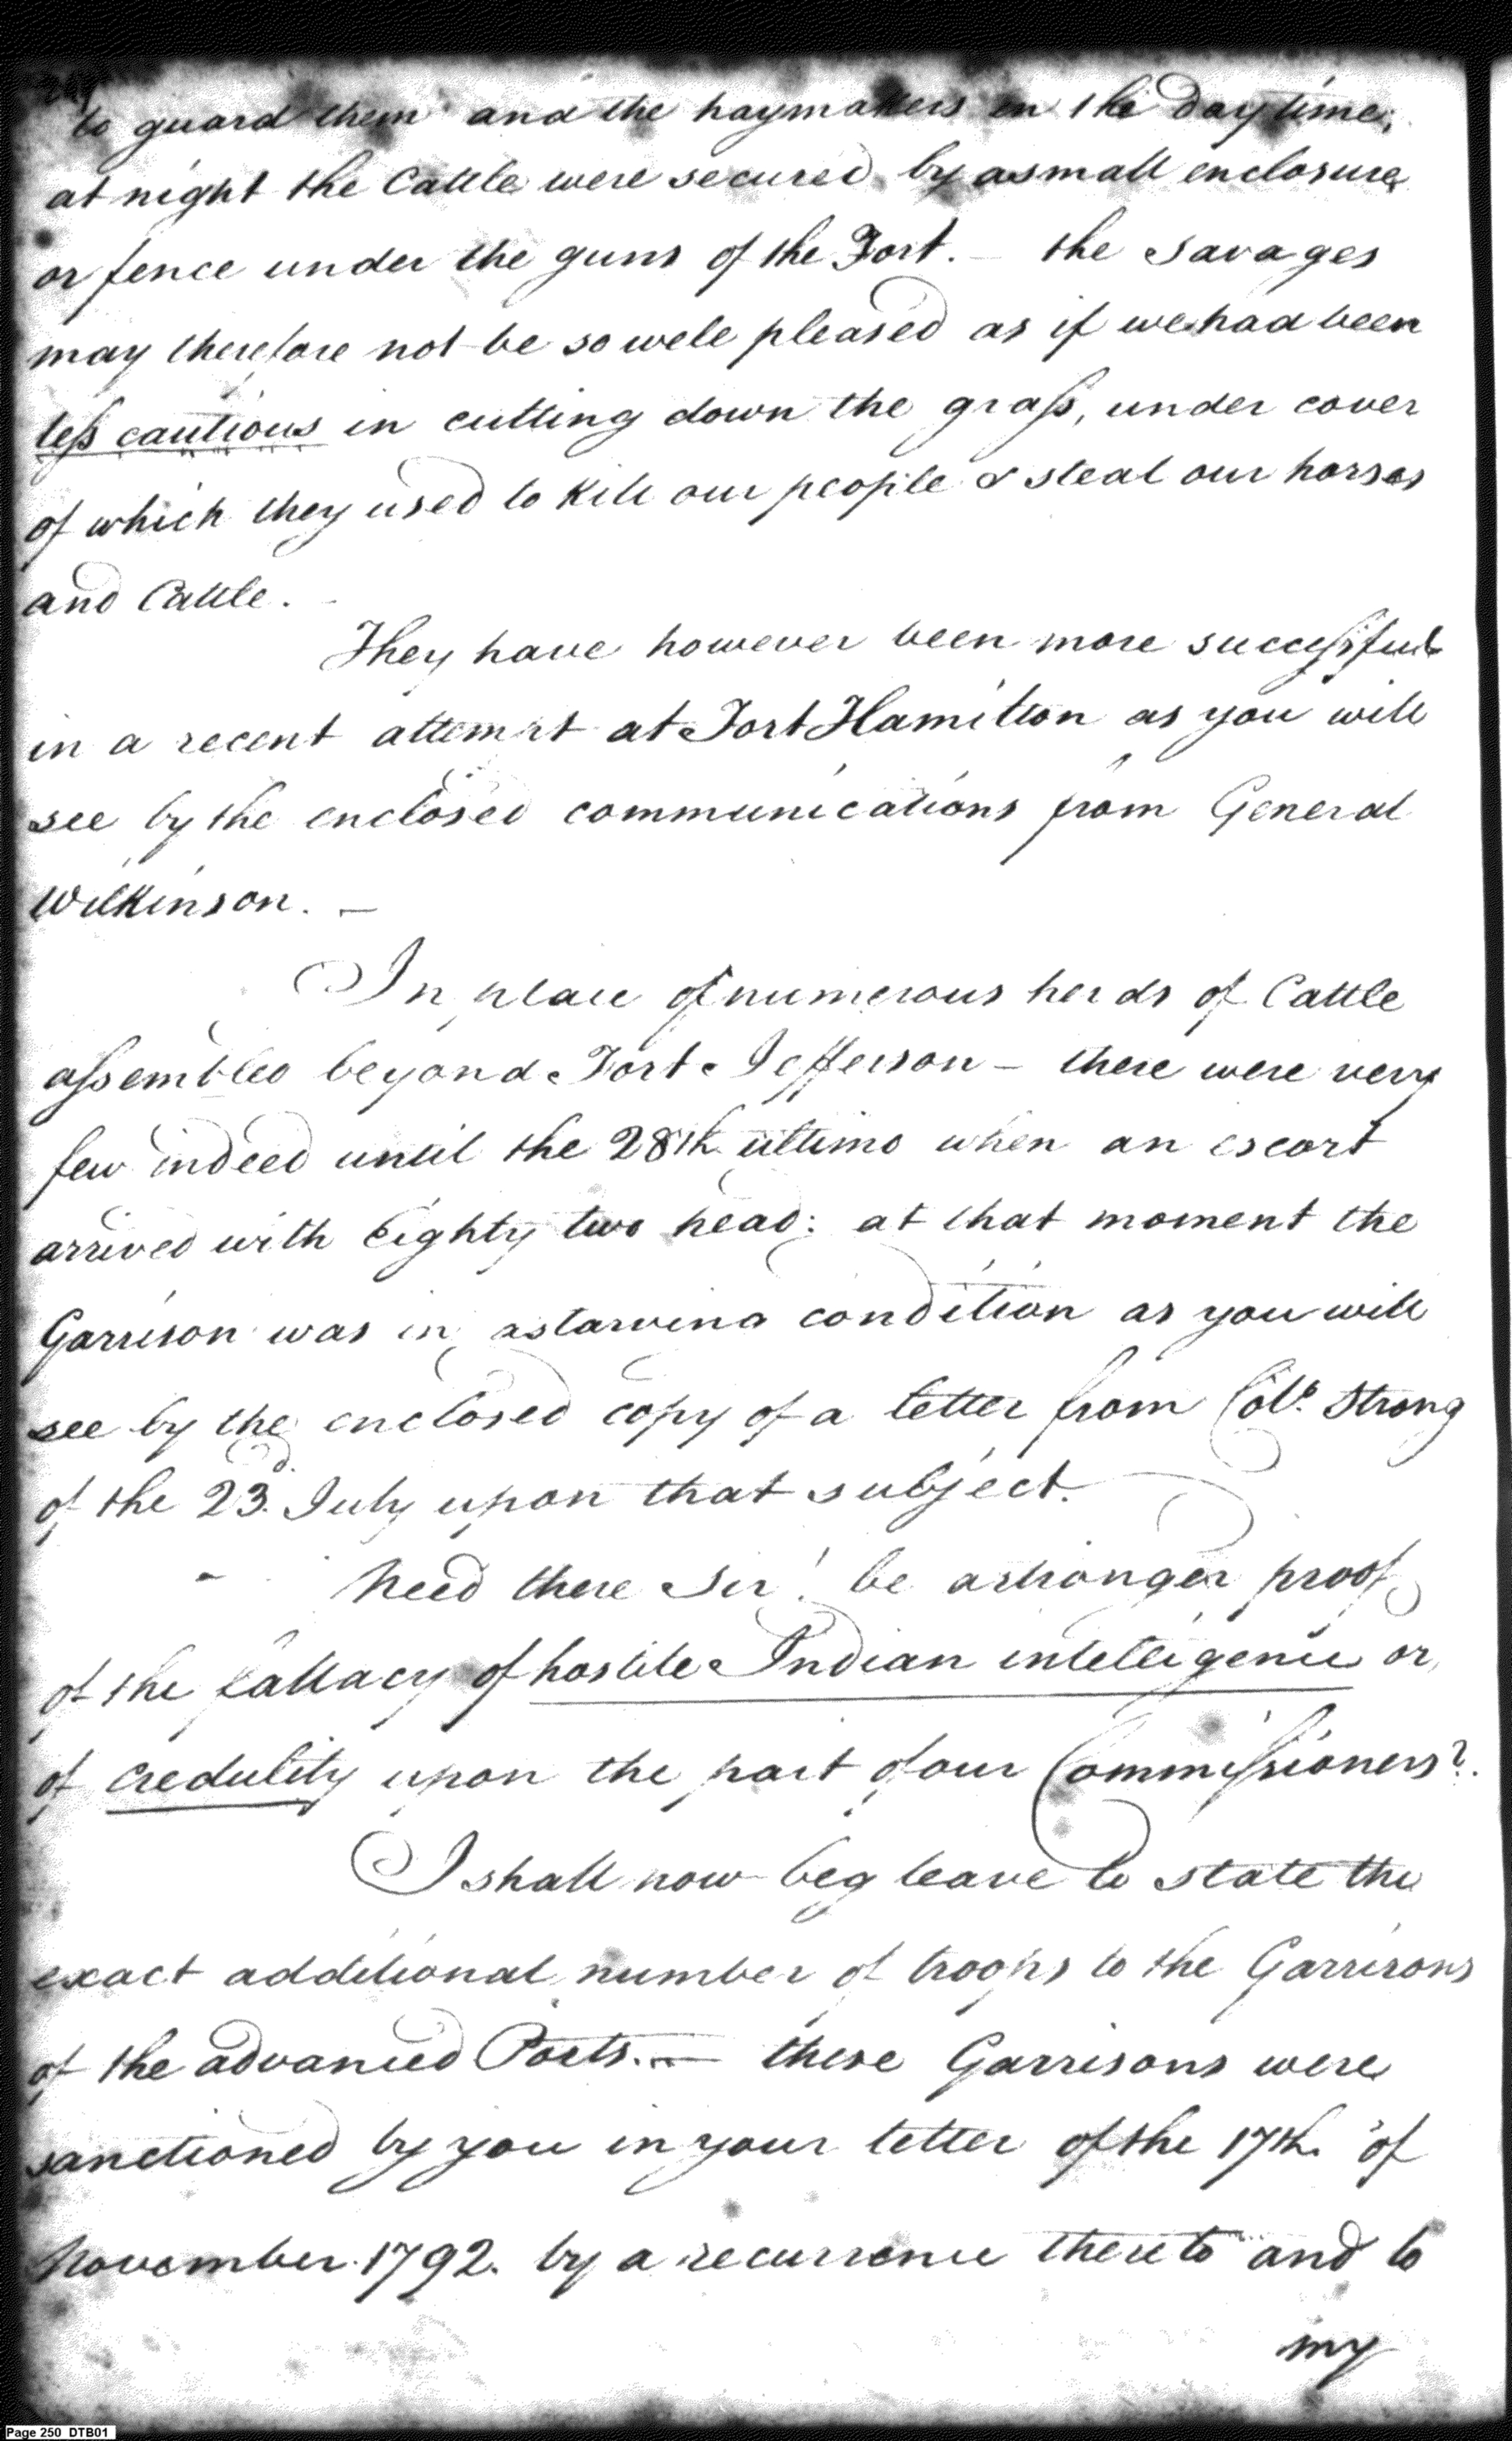 to guard them and the haymakers in the day time;
at night the Cattle were secured by a small enclosure
or fence under the guns of the Fort. – the Savages
may therefore not be so well pleased as if we had been
less cautious in cutting down the grass, under cover
of which they used to kill our people & steal our horses
and Cattle. –
They have however been more successful
in a recent attempt at Fort Hamilton as you will
see by the enclosed communications from General
Wilkinson. –
In place of numerous herds of Cattle
assembled beyond Fort Jefferson – there were very
few indeed until the 28th ultimo when an escort
arrived with Eighty two head: at that moment the
Garrison was in a starving condition as you will
see by the enclosed copy of a letter from Colo. Strong
of the 23d. July upon that subject.
Need there Sir! be a stronger proof
of the fallacy of hostile Indian intelligence or
of credulity upon the part of our Commissioners?.
I shall now beg leave to state the
exact additional number of troops to the Garrisons
of the advanced Posts. – these Garrisons were
sanctioned by you in your letter of the 17th. of
November 1792. by a recurrence thereto and to
my
Page 250 DTB01